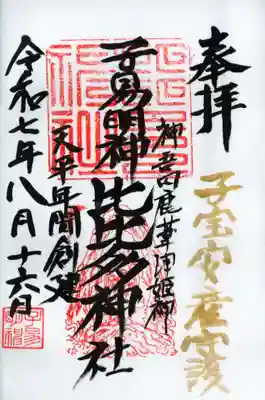 奉拝
子宝安産守護
神吾田鹿葦津姫神
子易明神 比比多神社
天平年間創建
令和七年八月十六日